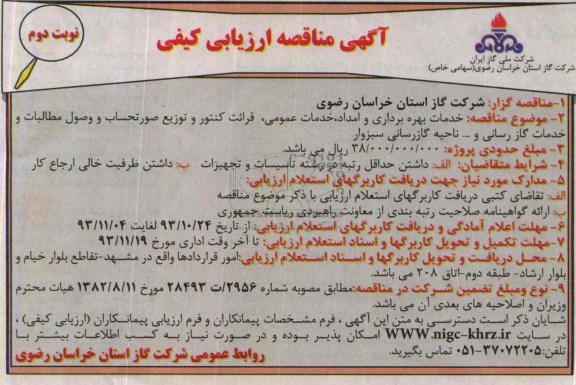 نوبت دوم
آگهی مناقصه ارزیابی کیفی
شرکت ملی گاز ایران
شرکت گاز استان خراسان رضوی(سهامی خاص)
۱-مناقصه گزار: شرکت گاز استان خراسان رضوی
۲- موضوع مناقصه: خدمات بهره برداری و امداد،خدمات عمومی، قرائت کنتور و توزیع صورتحساب و وصول مطالبات و
خدمات گاز رسانی و ... ناحیه گازرسانی سبزوار
۳- مبلغ حدودی پروژه: ۳۸/۰۰۰/۰۰۰/۰۰۰ ریال می باشد.
۴- شرایط متقاضیان: الف: داشتن حداقل رتبه در رشته تاسیسات و تجهیزات ب: داشتن ظرفیت خالی ارجاع کار
۵- مدارک مورد نیاز جهت دریافت کاربرگهای استعلام ارزیابی:
الف: تقاضای کتبی دریافت کاربرگهای استعلام ارزیابی با ذکر موضوع مناقصه
ب: ارائه گواهینامه صلاحیت رتبه بندی از معاونت راهبردی ریاست جمهوری
۶- مهلت اعلام آمادگی و دریافت کاربرگهای استعلام ارزیابی: از تاریخ ۹۳/۱۰/۲۴ لغایت ۹۳/۱۱/۰۴
۷- مهلت تکمیل و تحویل کاربرگها و اسناد استعلام ارزیابی: تا آخر وقت اداری مورخ ۹۳/۱۱/۱۹
۸- محل دریافت و تحویل کاربرگها و اسناد استعلام ارزیابی:امور قراردادها واقع در مشهد-تقاطع بلوار خیام و
بلوار ارشاد- طبقه دوم-اتاق ۲۰۸ می باشد.
۹- نوع ومبلغ تضمین شرکت در مناقصه:مطابق مصوبه شماره ۲۹۵۶/ت ۲۸۴۹۳ مورخ ۱۳۸۲/۸/۱۱ هیات محترم
وزیران و اصلاحیه های بعدی آن می باشد.
شایان ذکر است دسترسی به متن این آگهی ، فرم مشخصات پیمانکاران و فرم ارزیابی پیمانکاران (ارزیابی کیفی) ،
در سایت WWW.nigc-khrz.ir امکان پذیر بوده و در صورت نیاز به کسب اطلاعات بیشتر با
تلفن:۳۷۰۷۲۲۰۵-۰۵۱ تماس بگیرید.
روابط عمومی شرکت گاز استان خراسان رضوی